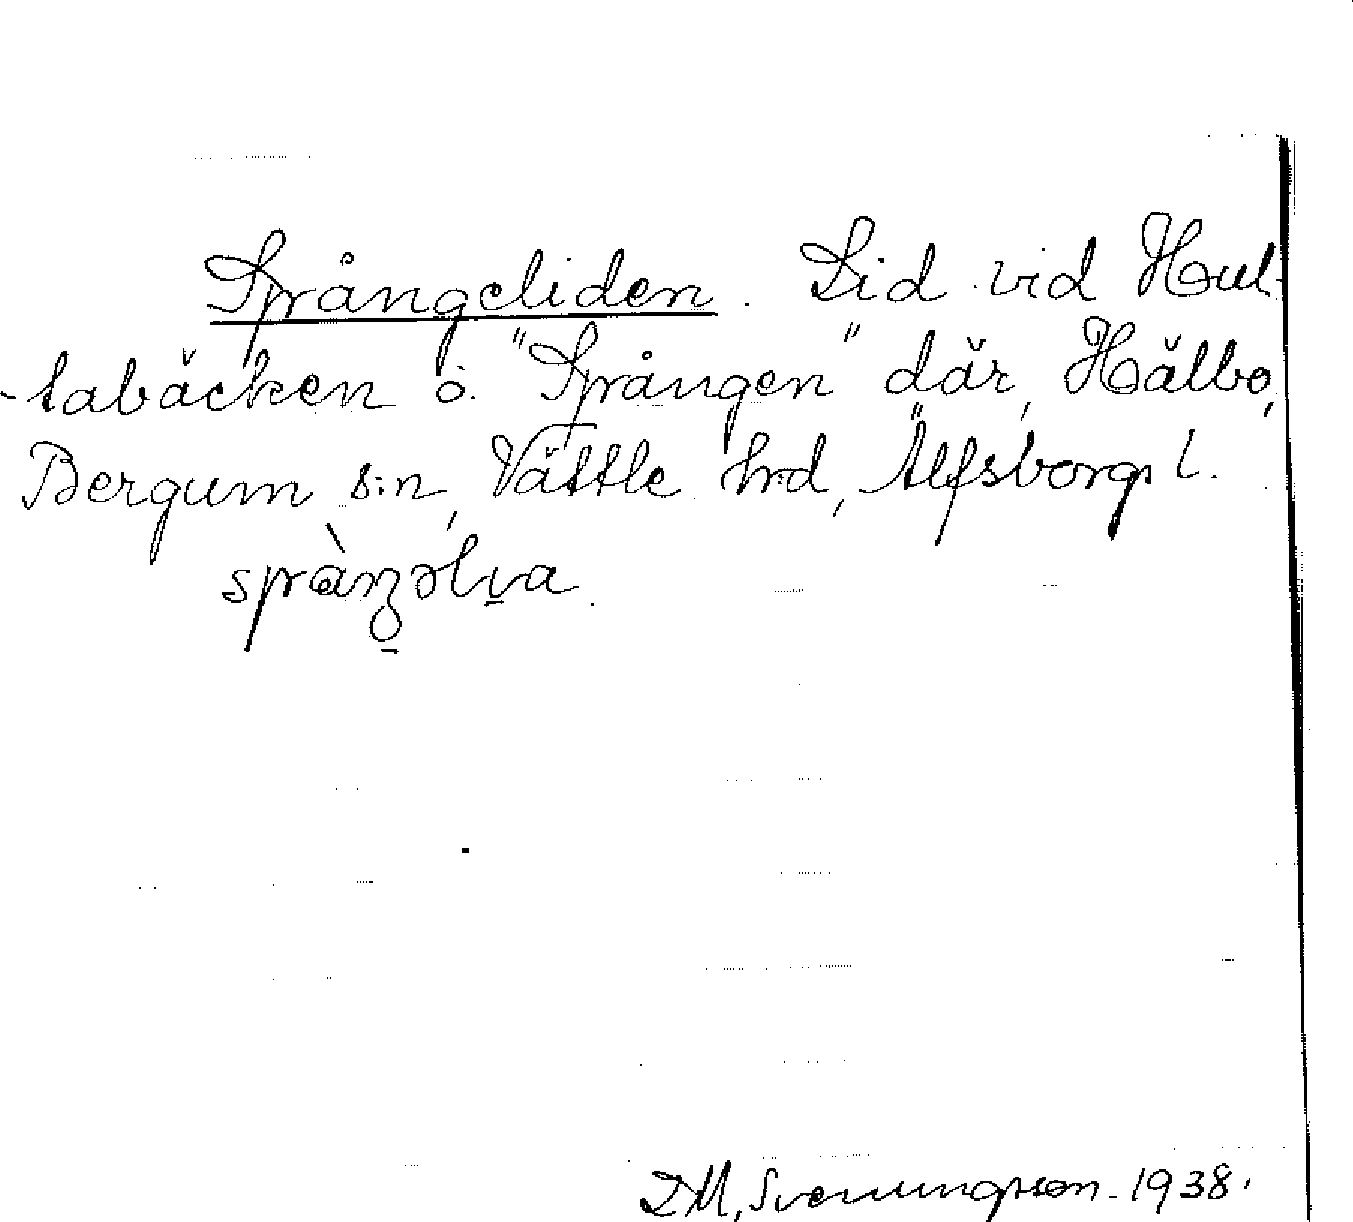 Språngeliden. Lid vid Hul-
-tabäcken o. "Sprången" där, Hälbo,
Bergum s:n, Vättle hrd, Älfsborgs l.
DM, Svenungsson - 1938.